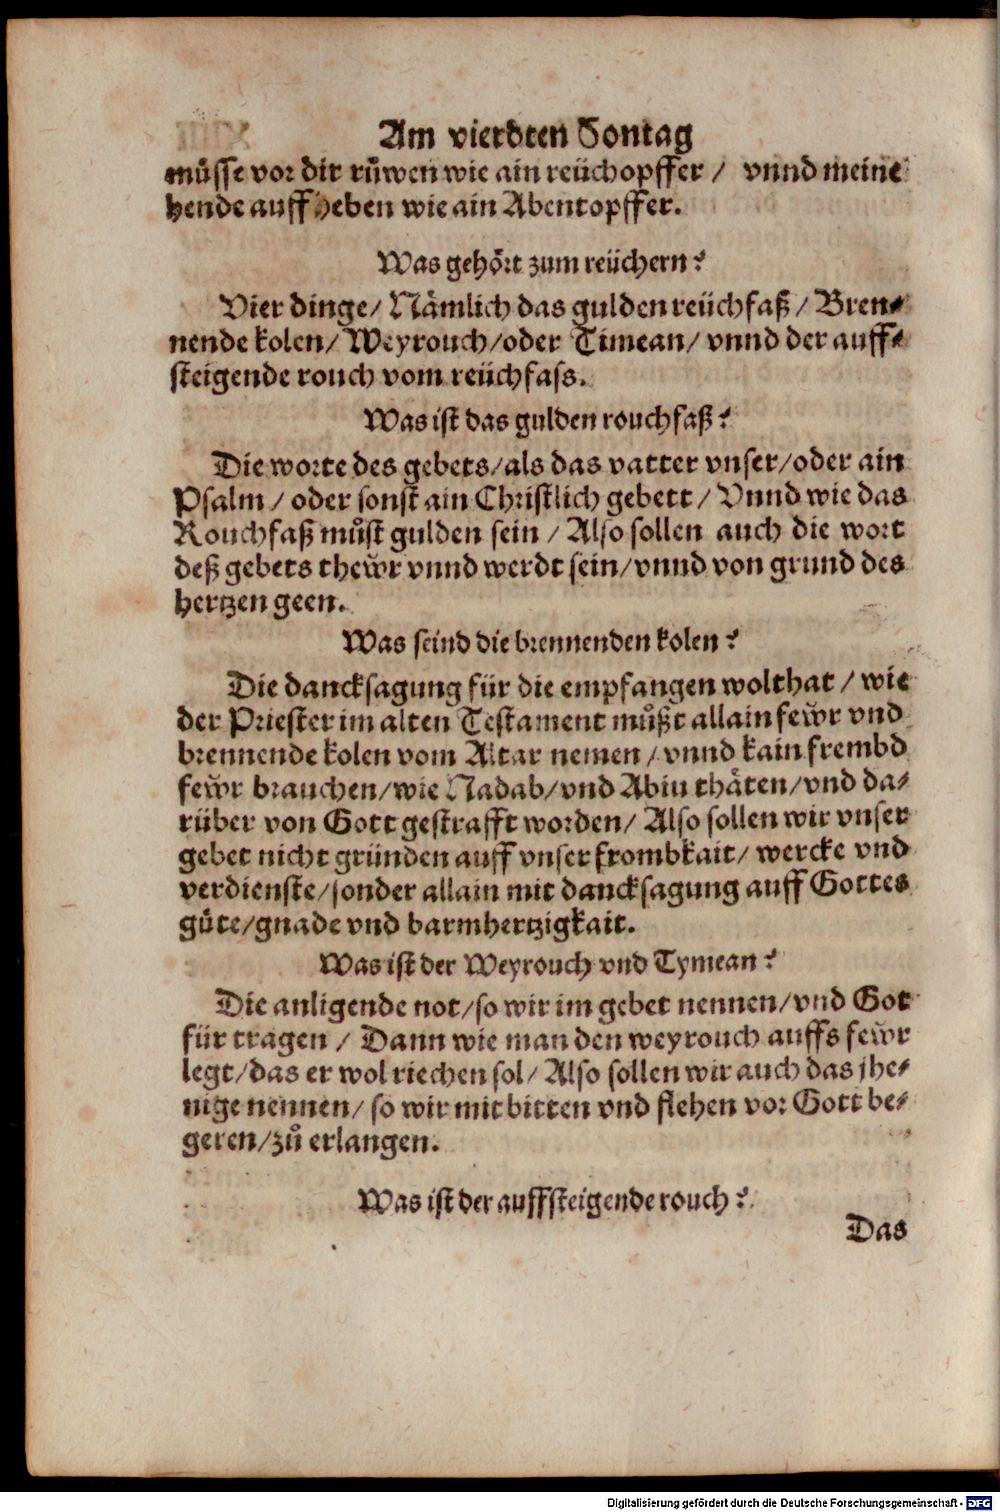 Am vierdten Sontag
müsse vor dir růwen wie ain reüchopffer / vnnd meine
hende auffheben wie ain Abentopffer.
Was gehört zum reüchern?
Vier dinge/ Nämlich das gulden reüchfaß / Bren-
nende kolen/ Weyrouch/oder Timean/ vnnd der auff-
steigende rouch vom reüchfass.
Was ist das gulden rouchfaß?
Die worte des gebets/als das vatter vnser/oder ain
Psalm / oder sonst ain Christlich gebett / Vnnd wie das
Rouchfaß můst gulden sein / Also sollen auch die wort
deß gebets thewr vnnd werdt sein/vnnd von grund des
hertzen geen.
Was seind die brennenden kolen?
Die dancksagung für die empfangen wolthat / wie
der Priester im alten Testament můßt allain fewr vnd
brennende kolen vom Altar nemen / vnnd kain frembd
fewr brauchen/wie Nadab/vnd Abiu thäten/vnd da-
rüber von Gott gestrafft worden/ Also sollen wir vnser
gebet nicht gründen auff vnser frombkait/ wercke vnd
verdienste/sonder allain mit dancksagung auff Gottes
güte/gnade vnd barmhertzigkait.
Was ist der Weyrouch vnd Tymean?
Die anligende not/so wir im gebet nennen/vnd Got
für tragen / Dann wie man den weyrouch auffs fewr
legt/das er wol riechen sol/ Also sollen wir auch das jhe-
nige nennen/ so wir mit bitten vnd flehen vor Gott be-
geren/zů erlangen.
Was ist der auffsteigende rouch?
Das
Digitalisierung gefördert durch die Deutsche Forschungsgemeinschaft - DFG